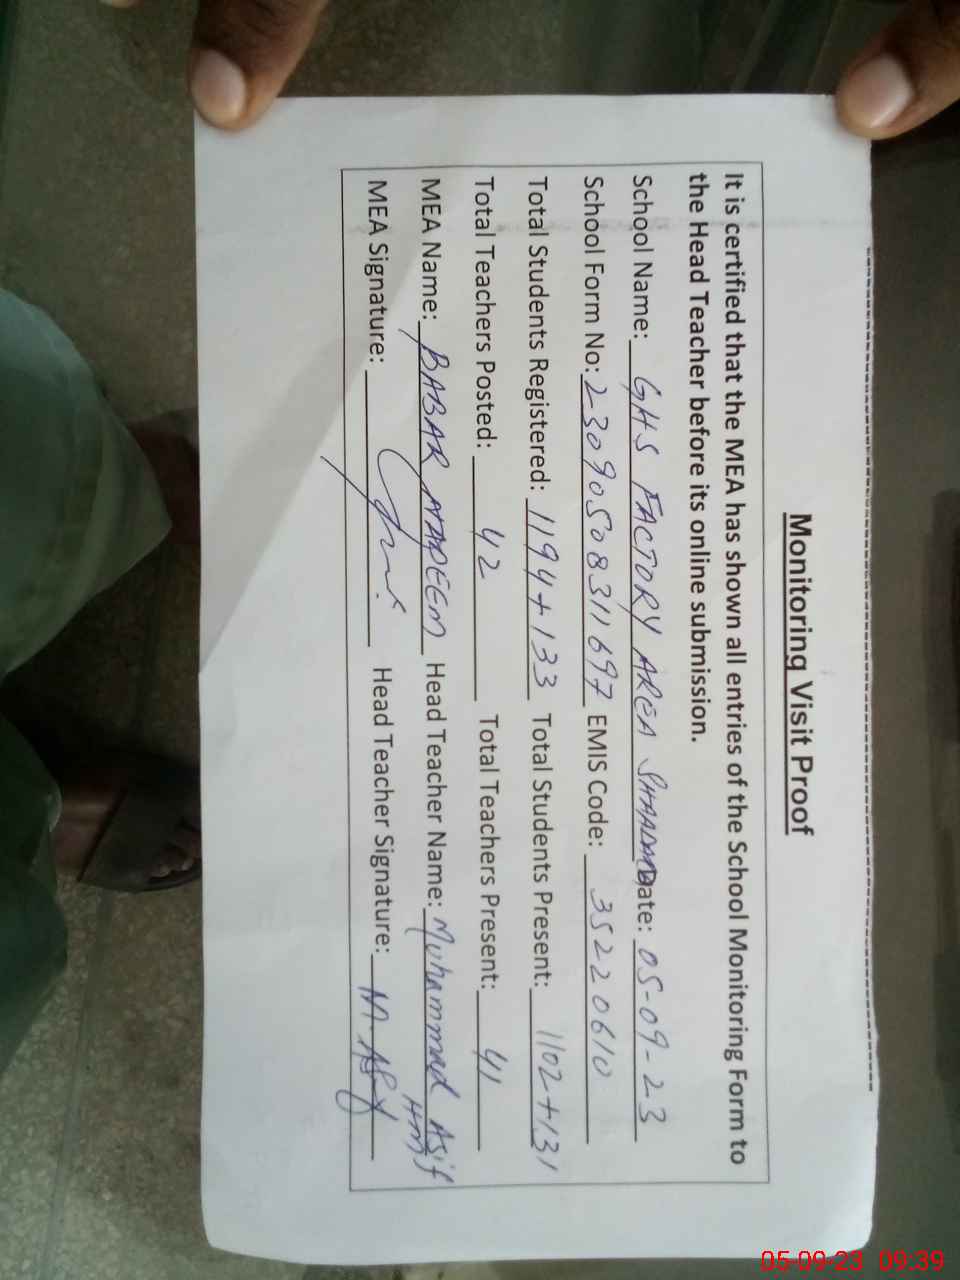 Monitoring Visit Proof
It is certified that the MEA has shown all entries of the School Monitoring Form to
the Head Teacher before its online submission.
School Name: GHS FACTORY AREA Date: 05-09-23
School Form No: 23090508311697 EMIS Code: 35220610
Total Students Registered: 1194+133 Total Students Present: 1102+131
Total Teachers Posted: 42 Total Teachers Present: 41
MEA Name: BABAR NADEEM Head Teacher Name: Muhammad Asif
HM
MEA Signature: Head Teacher Signature: M. Asif
05-09-23 09:39